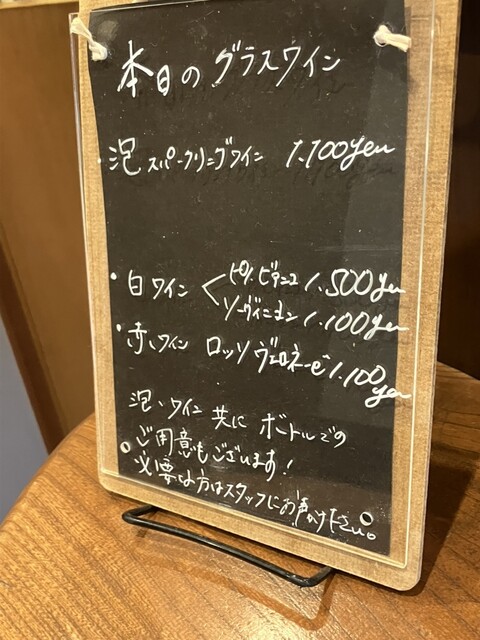 本日のグラスワイン
・泡 スパークリングワイン 1.100yen
・白ワイン ピノ ビアンコ 1.500yen
ソーヴィニヨン 1.100yen
・赤ワイン ロッソ ヴェロネーゼ 1.100yen
泡、ワイン 共に ボトルでの
ご用意もございます!
必要な方はスタッフにお声がけ下さい。